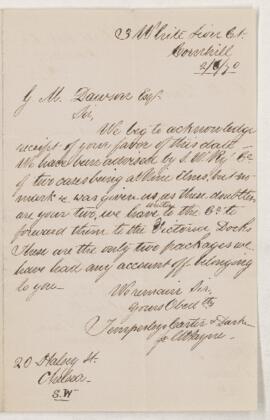 3 White Lion Ct.
Cornhill
G. M. Dawson Esqr.
Sir,
We beg to acknowledge
receipt of your favor of this date
We have been advised by L. & N. W. Ry. Co
of two cases being at Nine Elms, but no
mark &c was given us, as these doubtless
are your two, we have written to the Co to
forward them to the Victoria Docks
These are the only two packages we
have had any account off belonging
to you.
We remain Sir,
Yours Obedtly
Temperleys Carter & Darke
20 Halsey St.
Chelsea.
S.W